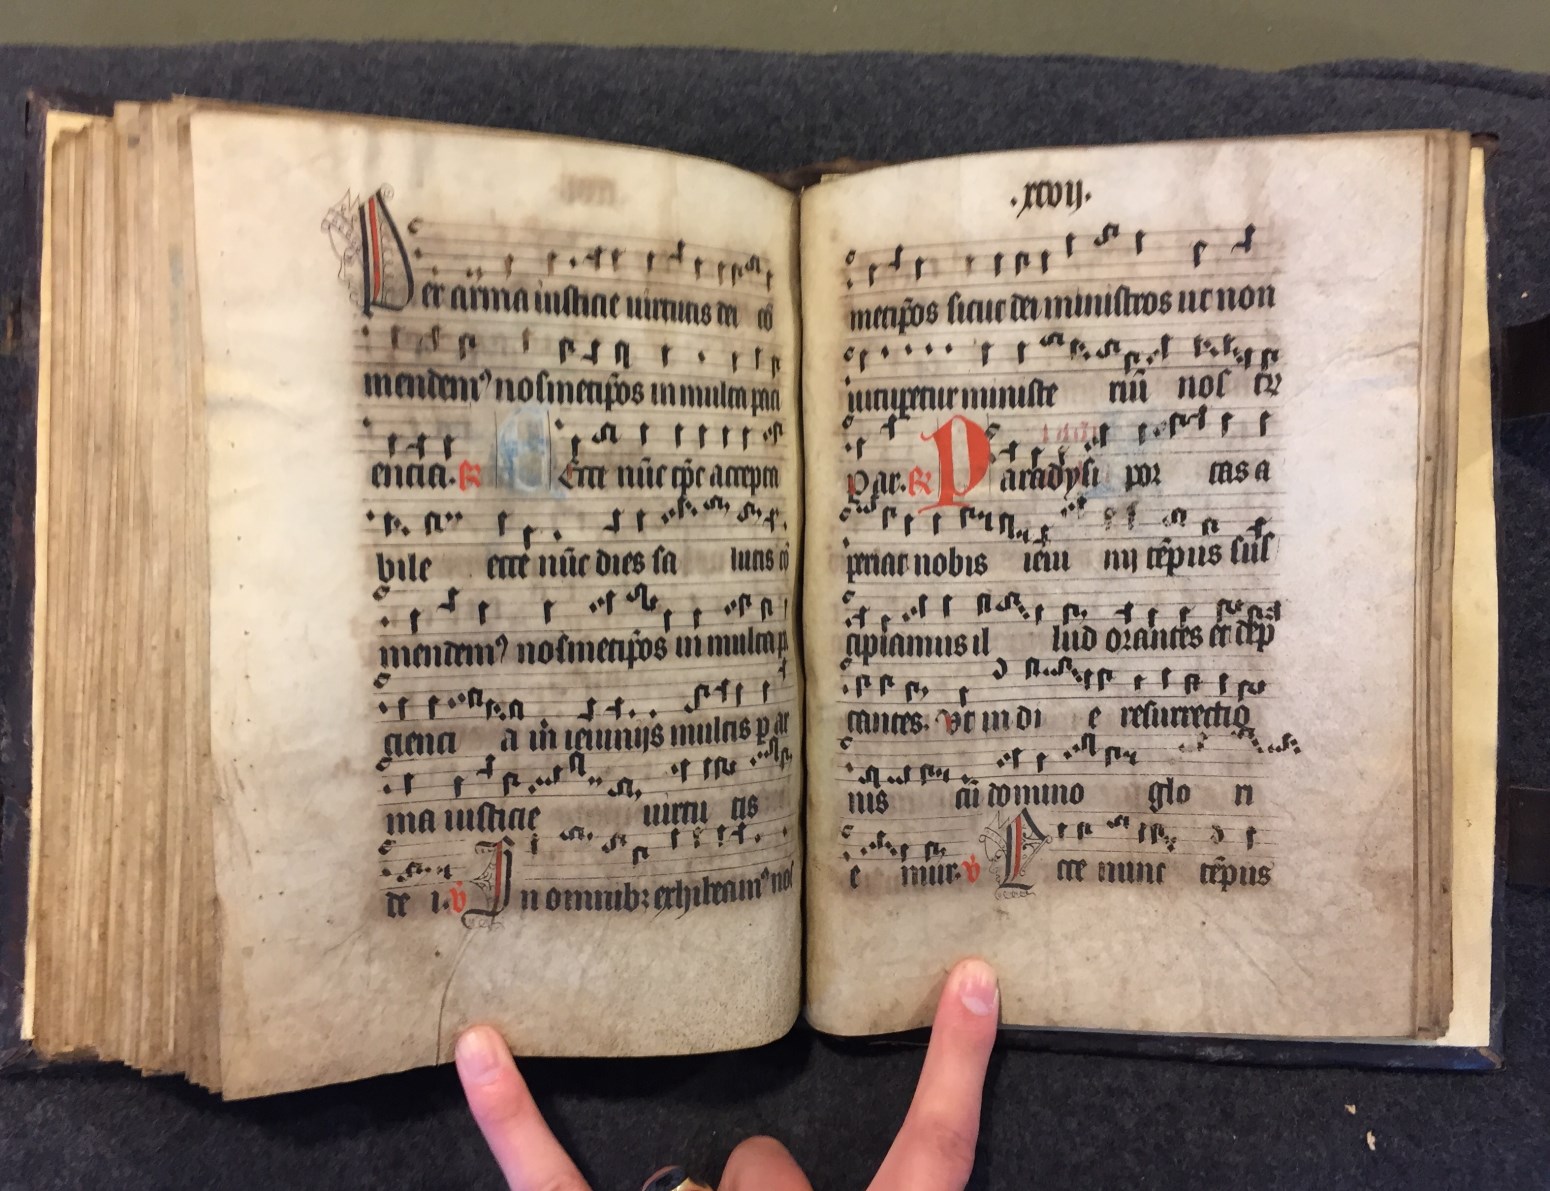 Per arma iusticie uirtutis dei cō
mendemꝰ nosmetip̄os in multa paci
encia. ꝶ Ecce nūc tp̄c accepta
bile ecce nūc dies sa lutis cō
mendemꝰ nosmetip̄os in multa p
acienci a in ieiunijs multis p ar
ma iusticie uirtu tis
de i. ℣ In omnibꝫ exhibeamꝰ nos
.xcvij.
metip̄os sicut dei ministros ut non
uitupetur ministe riū nos tꝝ
Per ar. ꝶ Paradysi por tas a
periat nobis ieiu nij tēpus sus
cipiamus il lud orantes et dep
cantes. Vt in di e resurrectio
nis cū domino glo ri
e mur. ℣ Ecce nunc tēpus